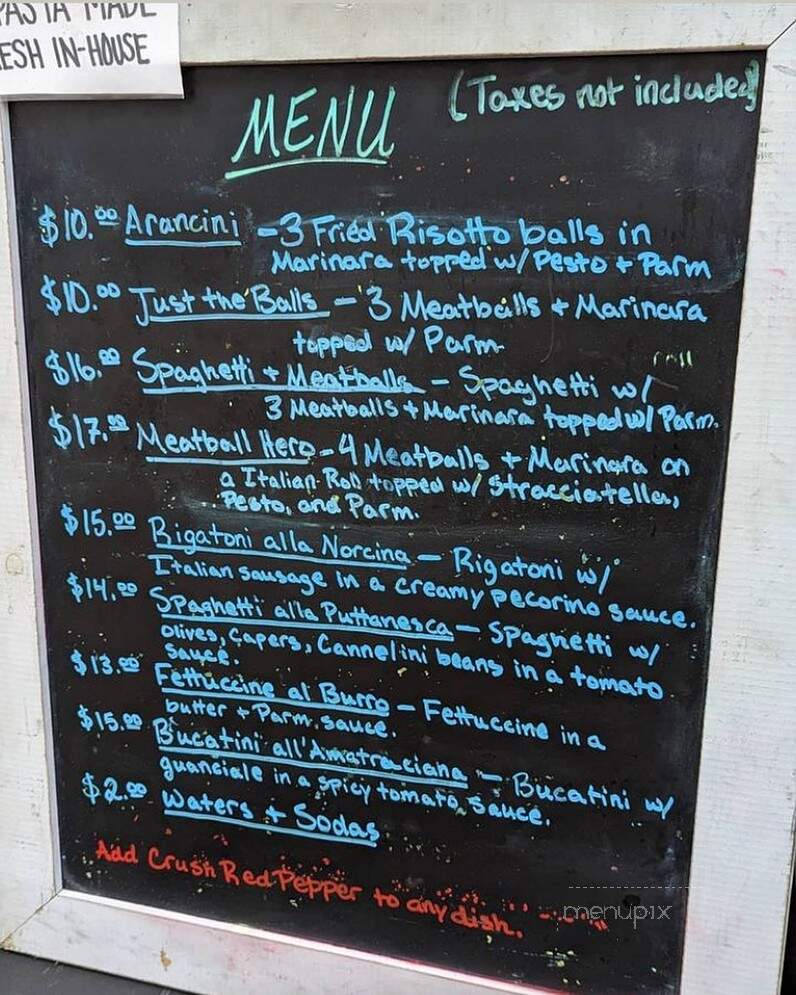 PASTA MADE
ESH IN-HOUSE
MENU
(Taxes not included)
$10.00 Arancini - 3 Fried Risotto balls in
Marinara topped w/ Pesto + Parm
$10.00 Just the Balls - 3 Meatballs + Marinara
topped w/ Parm
$16.00 Spaghetti + Meatballs - Spaghetti w/
3 Meatballs + Marinara topped w/ Parm.
$17.00 Meatball Hero - 4 Meatballs + Marinara on
a Italian Roll topped w/ Stracciatella,
Pesto, and Parm.
$15.00 Rigatoni alla Norcina - Rigatoni w/
Italian sausage in a creamy pecorino sauce.
$14.00 Spaghetti alla Puttanesca - Spaghetti w/
olives, Capers, Cannelini beans in a tomato
sauce.
$13.00 Fettuccine al Burro - Fettuccine in a
butter + Parm. sauce.
$15.00 Bucatini all'Amatraciana - Bucatini w/
guanciale in a spicy tomato sauce.
$2.00 Waters + Sodas
Add Crush Red Pepper to any dish.
menupix